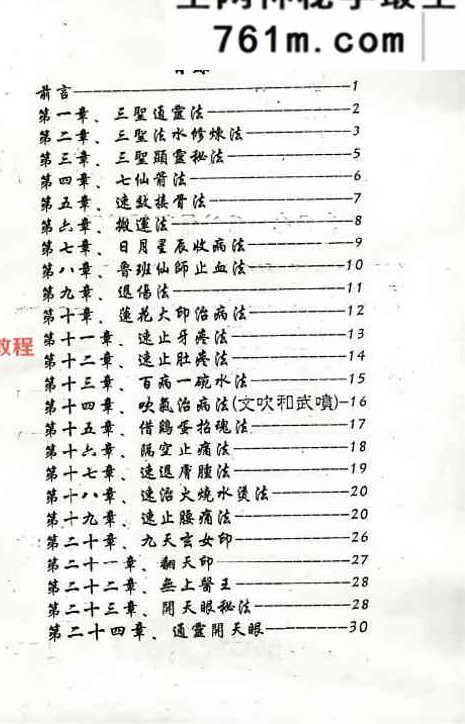 761m.com
前言------1
第一章、三聖通靈法------2
第二章、三聖法水修煉法------3
第三章、三聖顯靈秘法------5
第四章、七仙箭法------6
第五章、速紋接骨法------7
第六章、搬運法------8
第七章、日月星辰收病法------9
第八章、魯班仙師止血法------10
第九章、退傷法------11
第十章、蓮花大印治病法------12
教程
第十一章、速止牙疼法------13
第十二章、速止肚疼法------14
第十三章、百病一碗水法------15
第十四章、吹氣治病法(文吹和武噴)-16
第十五章、借鷄蛋招魂法------17
第十六章、隔空止痛法------18
第十七章、速退膚腫法------19
第十八章、速治火燒水燙法------20
第十九章、速止腰痛法------20
第二十章、九天玄女印------26
第二十一章、翻天印------27
第二十二章、無上醫王------28
第二十三章、開天眼秘法------28
第二十四章、通靈開天眼------30